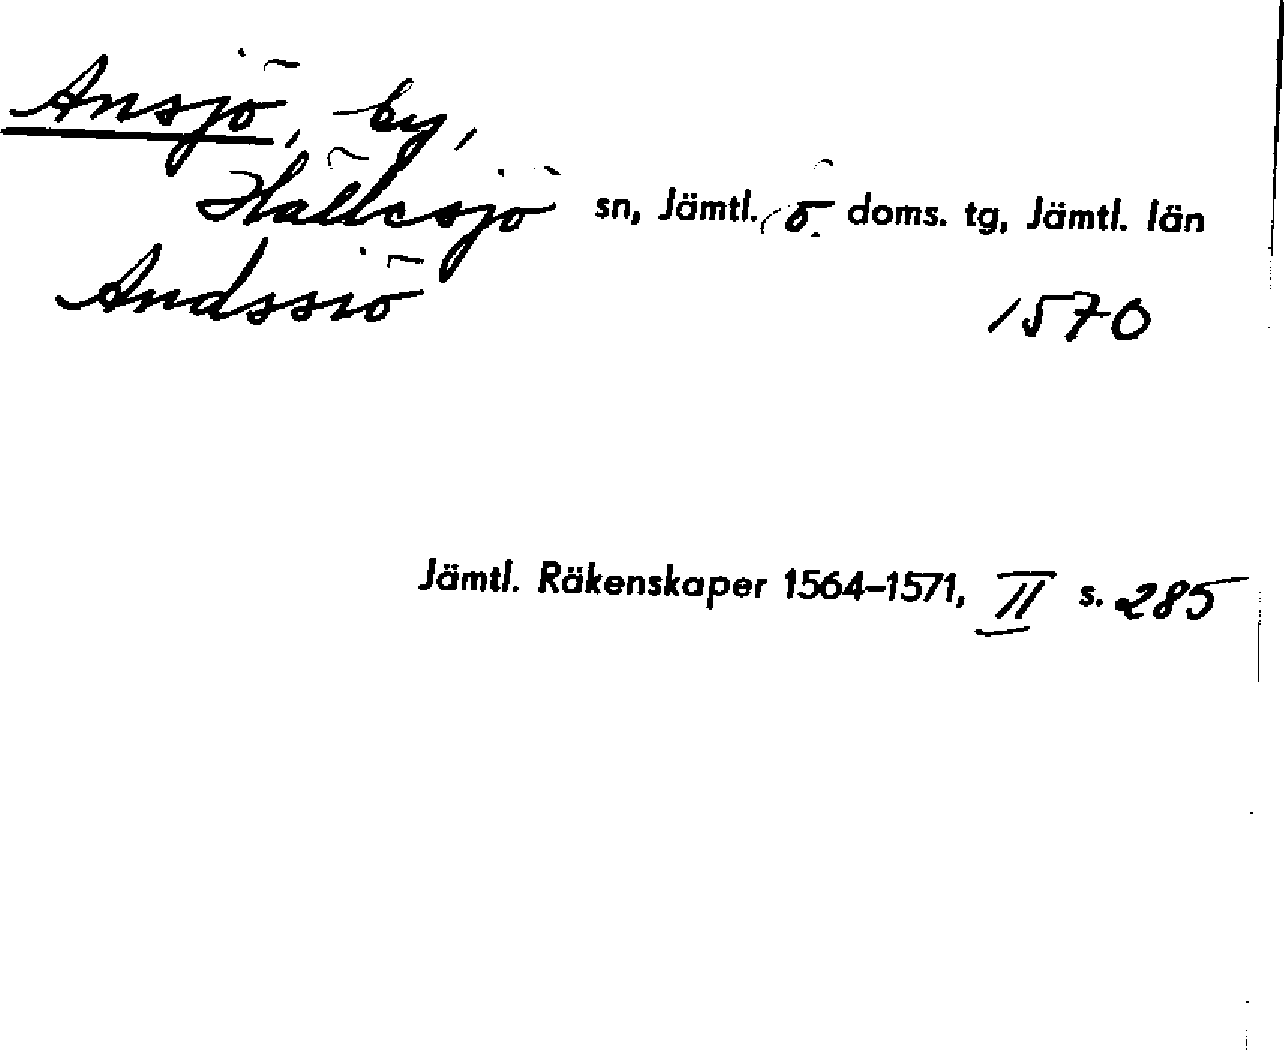 Ansjö, by,
Hällesjö sn, Jämtl. ö. doms. tg, Jämtl. län
Andssiö 1570
Jämtl. Räkenskaper 1564–1571, II s. 285